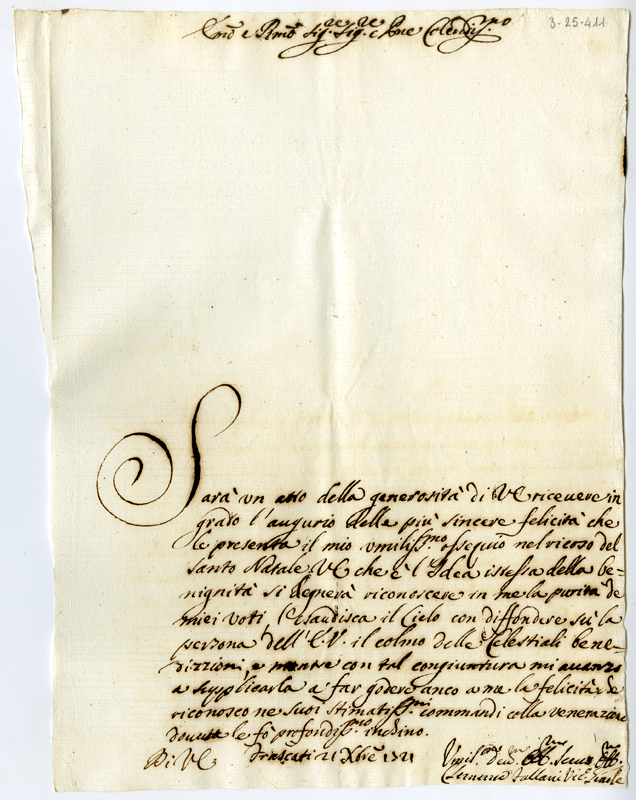 3-25-411
Em͞o e Rm͞o Sig.re Sig.re e Pne Colendiss.mo
Sarà vn atto della generosità di VE riceuere in
grado l'augurio delle più sincere felicità che
le presenta il mio vmiliss.mo ossequio nel ricorso del
Santo Natale. VE che è l'Idea istessa della be=
nignità si degnerà riconoscere in me la purità de
miei voti, l'esaudisca il Cielo con diffondere sù la
persona dell'E.V. il colmo delle Celestiali bene=
dizzioni, e mentre con tal congiuntura mi auanzo
a supplicarla a far godere anco a me la felicità che
riconosco ne suoi stimatiss.mi commandi colla venerazione
douuta le fò profondiss.mo inchino.
Di VE Frascati 21 Xbre 1721
Vmil.mo Deu.mo